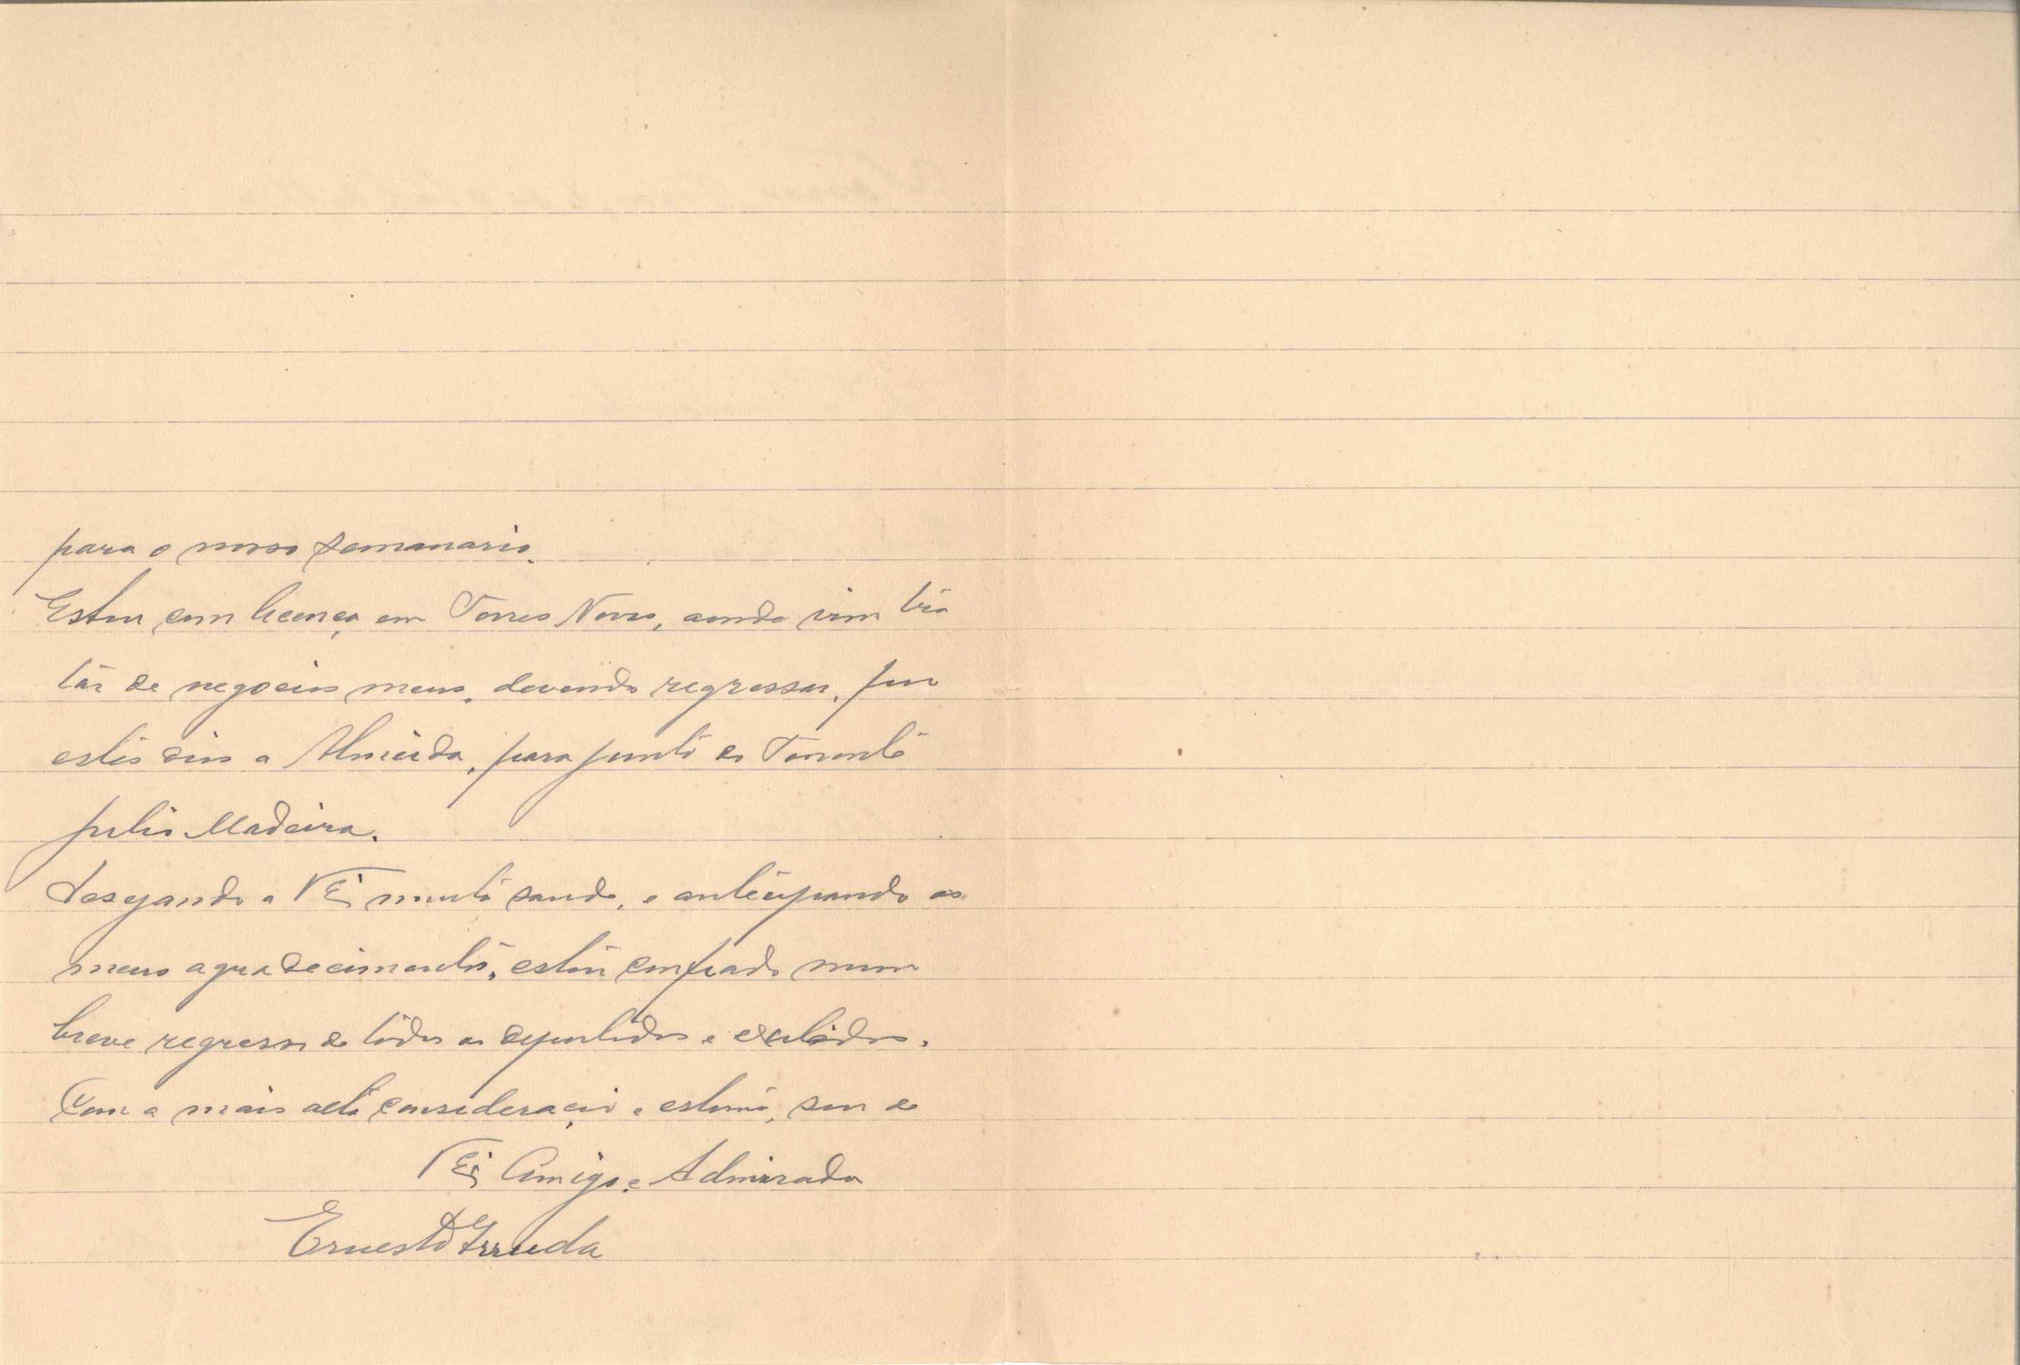 para o nosso semanario.
Estou com licença em Torres Novas, aonde vim tra
tár de negocios meus, devendo regressar, por
estes dias a Almeida, para junto do Tenente
Julio Madeira.
Desejando a V. Ex. muita saude, e antecipando os
meus agradecimentos, estou confiado num
breve regresso de todos os deportados e exilados.
Com a mais alta consideração e estima, sou de
V. Ex. Amigo e Admirador
Ernesto Arruda